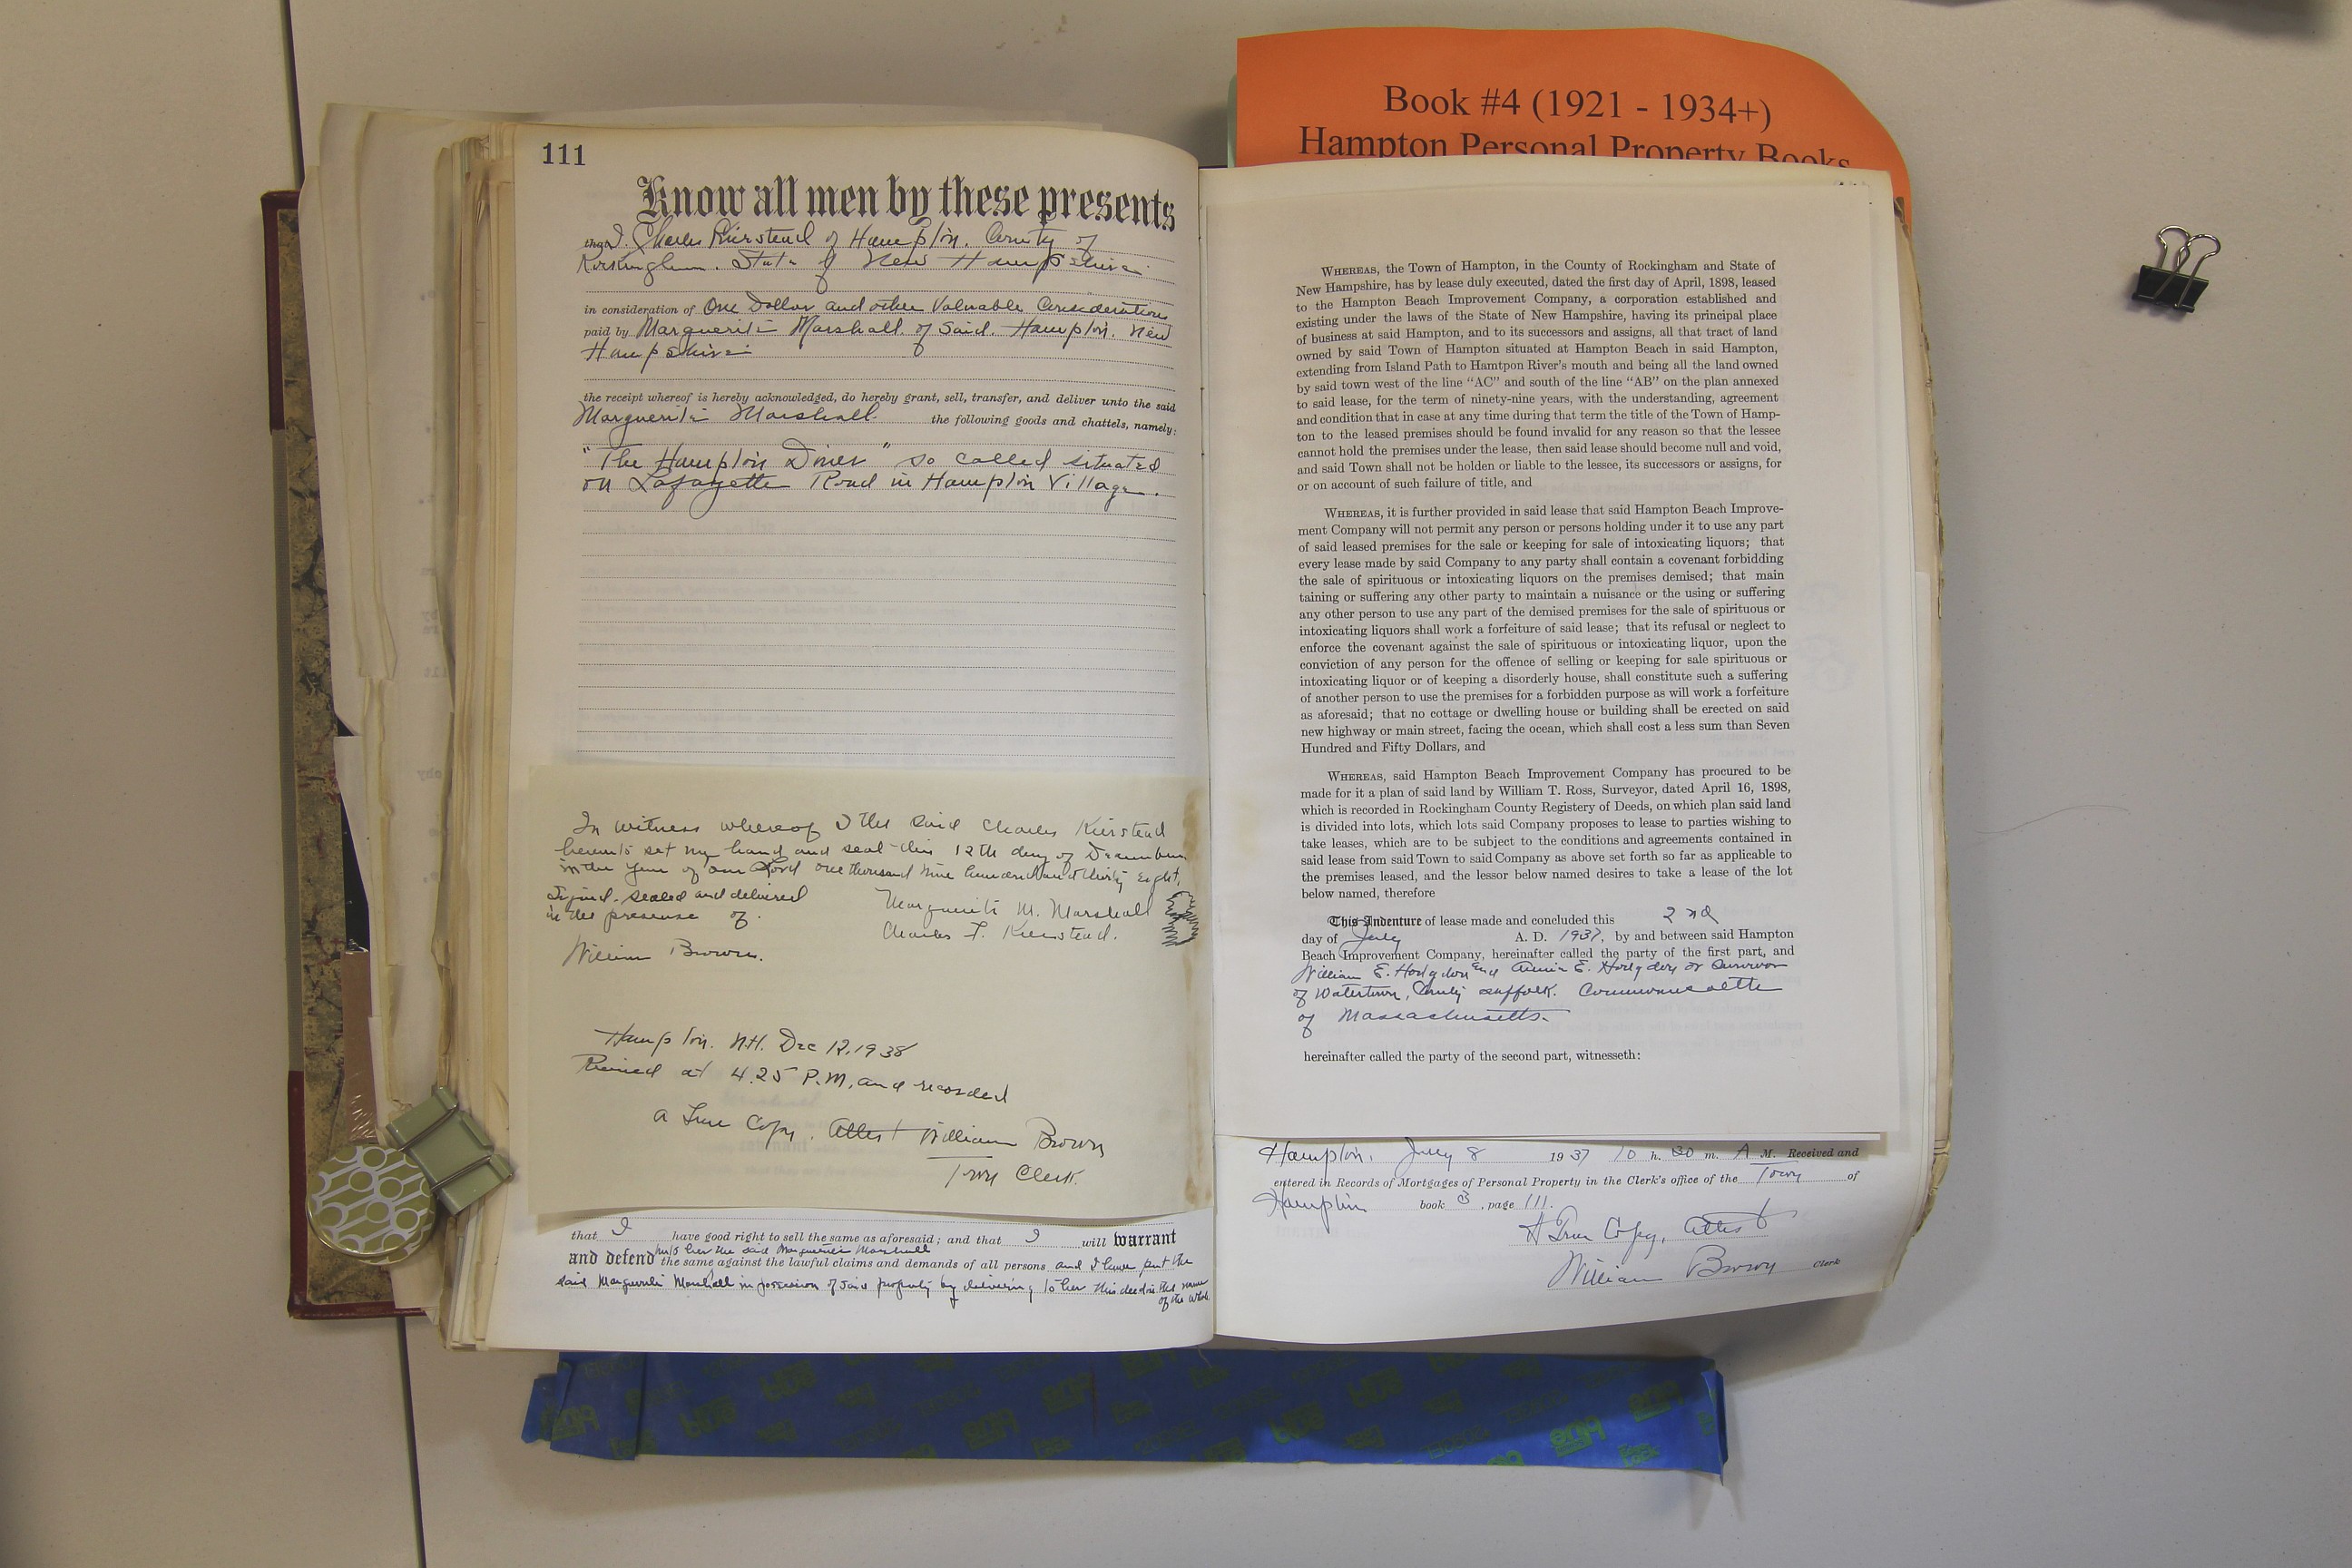 Book #4 (1921 - 1934+)
Hampton Personal Property Books
111
Know all men by these presents
that I, Charles Kierstead of Hampton, County of
Rockingham, State of New Hampshire
in consideration of One Dollar and other Valuable Considerations
paid by Marguerite Marshall of said Hampton, New
Hampshire
the receipt whereof is hereby acknowledged, do hereby grant, sell, transfer, and deliver unto the said
Marguerite Marshall the following goods and chattels, namely:
"The Hampton Diner" so called situated
on Lafayette Road in Hampton Village.
In witness whereof I the said Charles Kierstead
hereunto set my hand and seal this 12th day of December
in the year of our Lord one thousand nine hundred and thirty eight,
Signed, sealed and delivered
in the presense of.
Marguerite M. Marshall
Charles F. Kierstead.
William Brown.
Hampton. N.H. Dec 12, 1938
Received at 4.25 P.M. and recorded
A True Copy. Attest William Brown
Town Clerk.
that I have good right to sell the same as aforesaid; and that I will warrant
unto her the said Marguerite Marshall
and defend the same against the lawful claims and demands of all persons and I have put the
said Marguerite Marshall in possession of said property by delivering to her this deed in the name
of the whole
WHEREAS, the Town of Hampton, in the County of Rockingham and State of
New Hampshire, has by lease duly executed, dated the first day of April, 1898, leased
to the Hampton Beach Improvement Company, a corporation established and
existing under the laws of the State of New Hampshire, having its principal place
of business at said Hampton, and to its successors and assigns, all that tract of land
owned by said Town of Hampton situated at Hampton Beach in said Hampton,
extending from Island Path to Hamtpon River's mouth and being all the land owned
by said town west of the line "AC" and south of the line "AB" on the plan annexed
to said lease, for the term of ninety-nine years, with the understanding, agreement
and condition that in case at any time during that term the title of the Town of Hamp-
ton to the leased premises should be found invalid for any reason so that the lessee
cannot hold the premises under the lease, then said lease should become null and void,
and said Town shall not be holden or liable to the lessee, its successors or assigns, for
or on account of such failure of title, and
WHEREAS, it is further provided in said lease that said Hampton Beach Improve-
ment Company will not permit any person or persons holding under it to use any part
of said leased premises for the sale or keeping for sale of intoxicating liquors; that
every lease made by said Company to any party shall contain a covenant forbidding
the sale of spirituous or intoxicating liquors on the premises demised; that main
taining or suffering any other party to maintain a nuisance or the using or suffering
any other person to use any part of the demised premises for the sale of spirituous or
intoxicating liquors shall work a forfeiture of said lease; that its refusal or neglect to
enforce the covenant against the sale of spirituous or intoxicating liquor, upon the
conviction of any person for the offence of selling or keeping for sale spirituous or
intoxicating liquor or of keeping a disorderly house, shall constitute such a suffering
of another person to use the premises for a forbidden purpose as will work a forfeiture
as aforesaid; that no cottage or dwelling house or building shall be erected on said
new highway or main street, facing the ocean, which shall cost a less sum than Seven
Hundred and Fifty Dollars, and
WHEREAS, said Hampton Beach Improvement Company has procured to be
made for it a plan of said land by William T. Ross, Surveyor, dated April 16, 1898,
which is recorded in Rockingham County Registery of Deeds, on which plan said land
is divided into lots, which lots said Company proposes to lease to parties wishing to
take leases, which are to be subject to the conditions and agreements contained in
said lease from said Town to said Company as above set forth so far as applicable to
the premises leased, and the lessor below named desires to take a lease of the lot
below named, therefore
This Indenture of lease made and concluded this 2nd
day of July A. D. 1937, by and between said Hampton
Beach Improvement Company, hereinafter called the party of the first part, and
William E. Hodgdon and Annie E. Hodgdon or Survivor
of Watertown, County Suffolk. Commonwealth
of Massachusetts.
hereinafter called the party of the second part, witnesseth:
Hampton, July 8 1937 10 h. 30 m. A M. Received and
entered in Records of Mortgages of Personal Property in the Clerk's office of the Town of
Hampton book 3, page 111.
A True Copy, Attest
William Brown Clerk